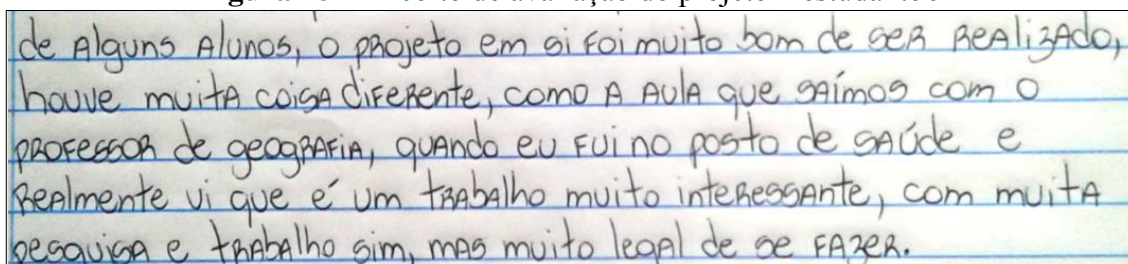 de Alguns Alunos, o projeto em si foi muito bom de ser realizado,
houve muita coisa diferente, como a aula que saímos com o
professor de geografia, quando eu fui no posto de saúde e
realmente vi que é um trabalho muito interessante, com muita
pesquisa e trabalho sim, mas muito legal de se fazer.